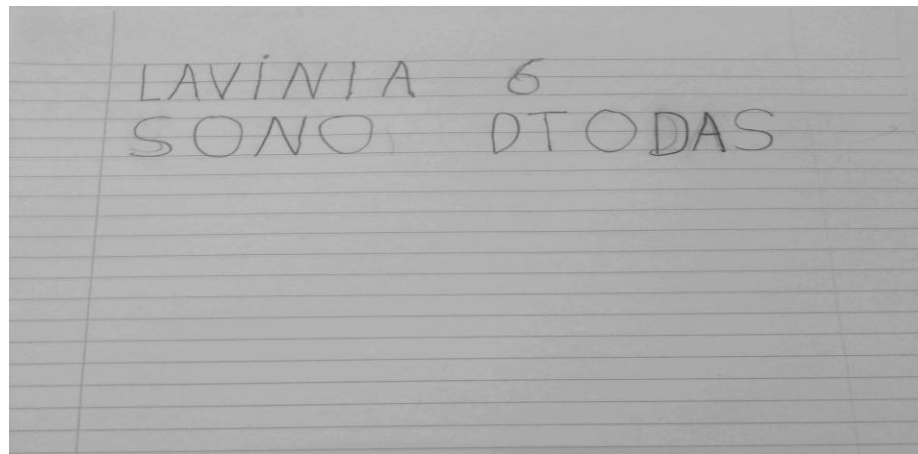 LAVÍNIA 6
SONO DTODAS